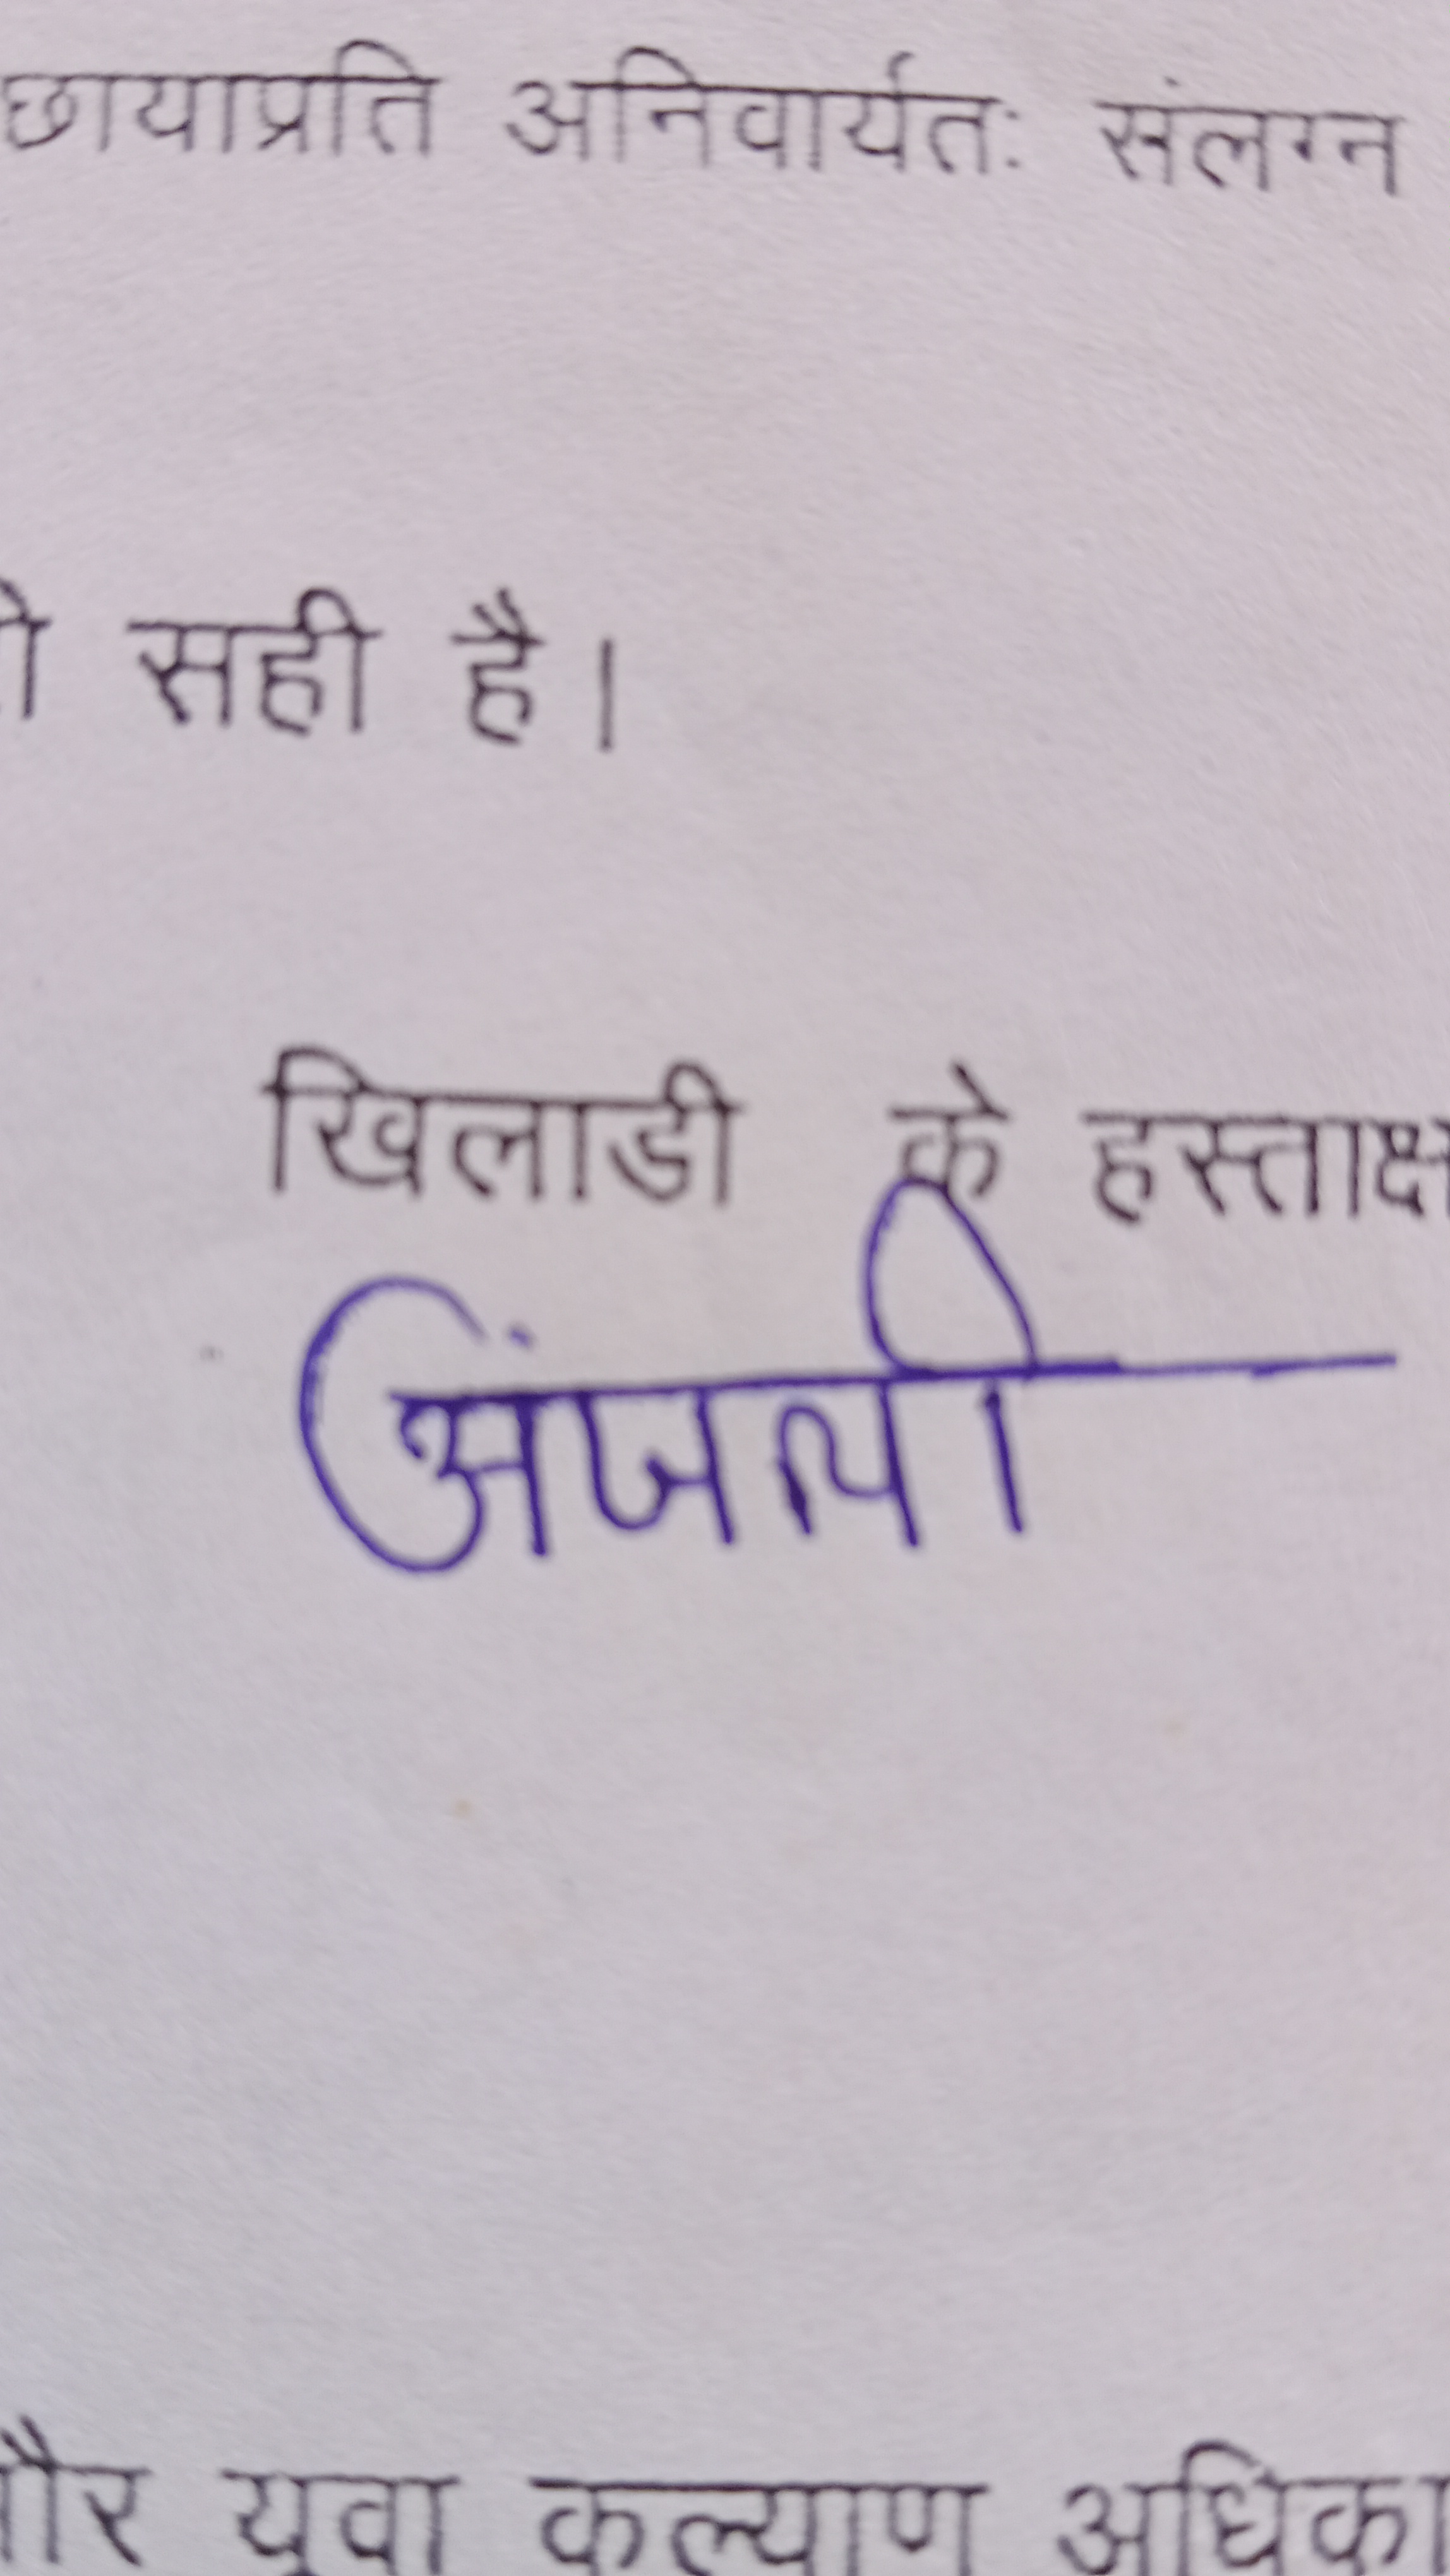 छायाप्रति अनिवार्यतः संलग्न
सही है।
खिलाडी के हस्ताक्ष
अंजली
और युवा कल्याण अधिका